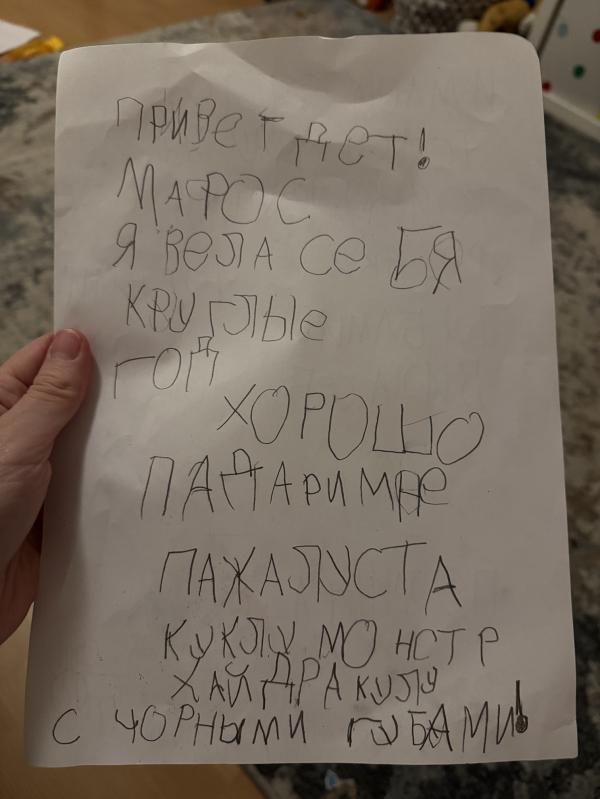 ПРИВЕТ ДЕТ!
МАРОС
Я ВЕЛА СЕ БЯ
КРУГЛЫЕ
ГОД
ХОРОШО
ПАДАРИ МНЕ
ПАЖАЛУСТА
КУКЛУ МОНСТР
ХАЙ ДРАКУЛУ
С ЧОРНЫМИ ГУБАМИ!